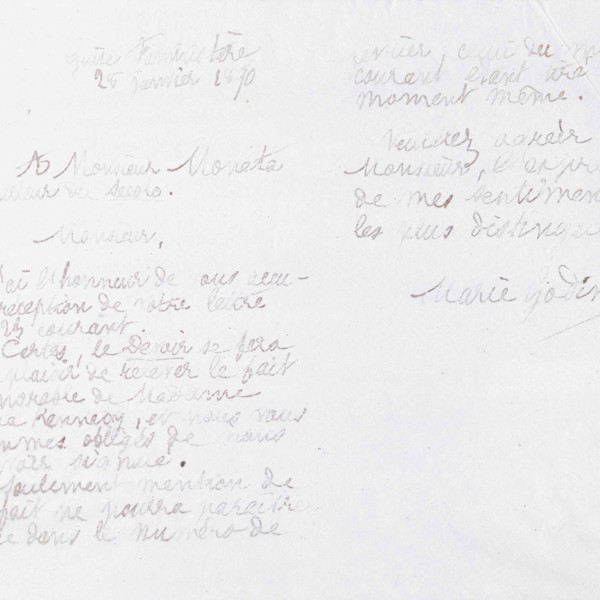 Guise Familistère
28 janvier 1890
A Monsieur Moneta
du Secolo.
Monsieur,
J'ai l'honneur de vous accu-
réception de votre lettre
23 courant.
Certes, le Devoir se fera
plaisir de relever le fait
de Madame
Kennedy, et nous vous
mmes obligés de nous
voir signalé.
Seulement mention de
fait ne pourra paraître
que dans le numéro de
février, celui du m
courant étant tiré
moment même.
Veuillez agréer
Monsieur, l'expr
de mes sentimen
les plus distingu
Marie Godin